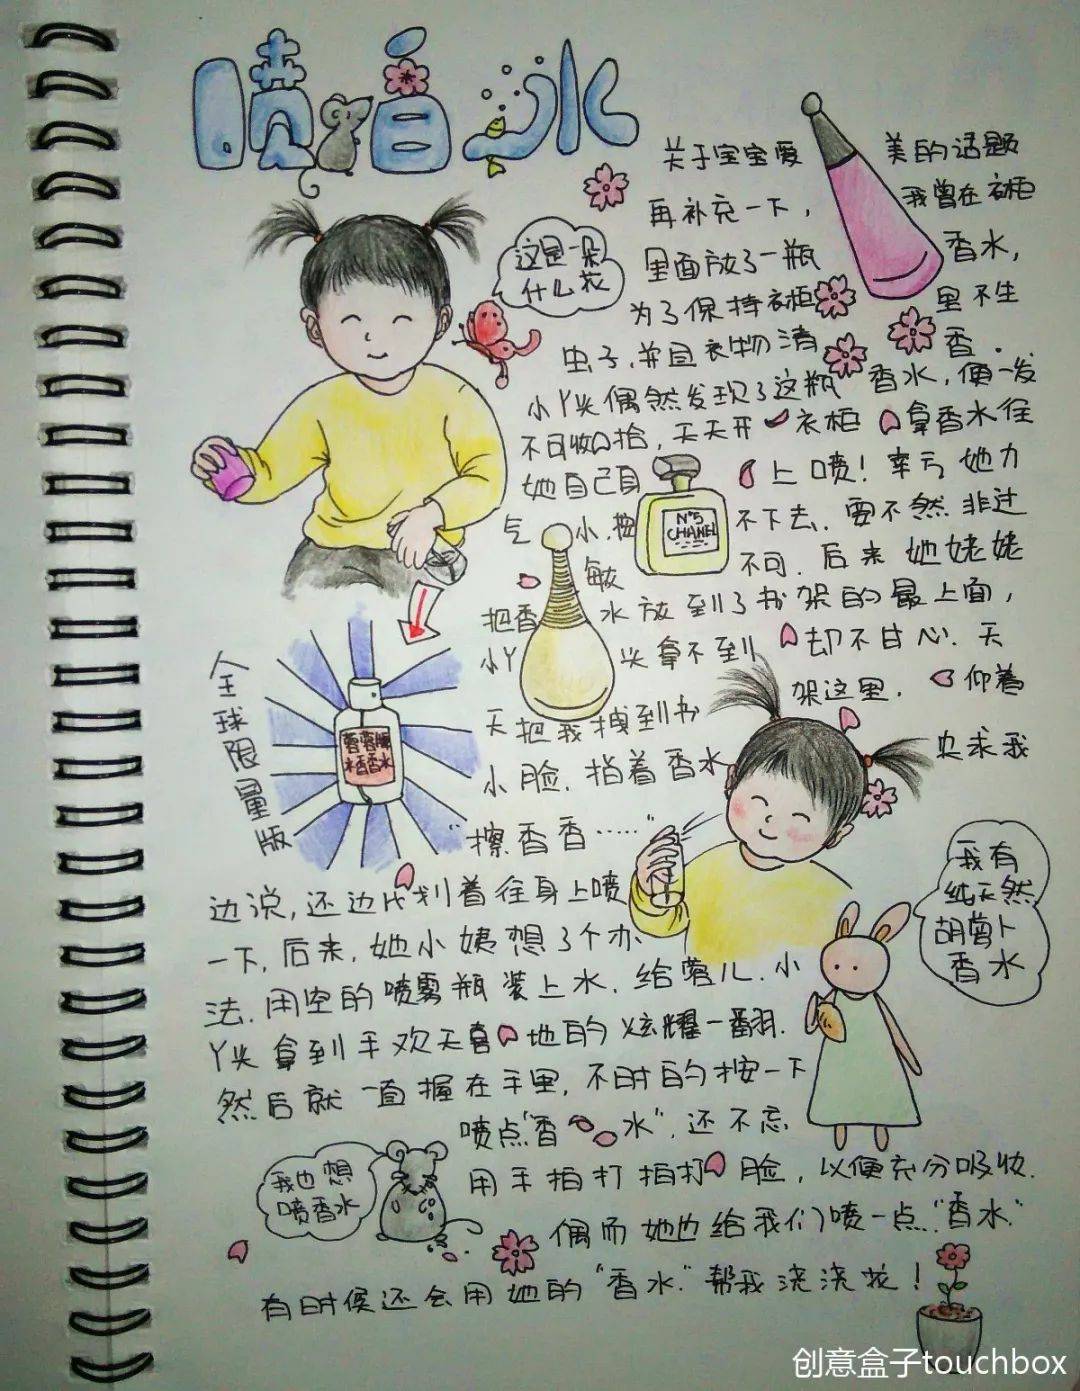 喷香水
关于宝宝爱美的话题
再补充一下，我曾在衣柜
里面放了一瓶香水，
为了保持衣柜里不生
虫子，并且衣物清香．
小丫头偶然发现了这瓶香水，便一发
不可收拾，天天开衣柜拿香水往
她自己身上喷！幸亏她力
气小．按不下去．要不然非过
敏不可．后来她姥姥
把香水放到了书架的最上面，
小丫头拿不到却不甘心．天
天把我拽到书架这里．仰着
小脸．指着香水央求我
“擦香香……”
边说，还边比划着往身上喷
一下，后来，她小姨想了个办
法．用空的喷雾瓶装上水．给蓉儿．小
丫头拿到手欢天喜地的炫耀一翻．
然后就一直握在手里，不时的按一下
喷点“香水”．还不忘
用手拍打拍打脸，以便充分吸收．
偶而她也给我们喷一点“香水”
有时候还会用她的“香水”帮我浇浇花！
这是一朵
什么花
N°5
CHANEL
全球限量版
蓉蓉牌
米香香水
我有
纯天然
胡萝卜
香水
我也想
喷香水
创意盒子touchbox